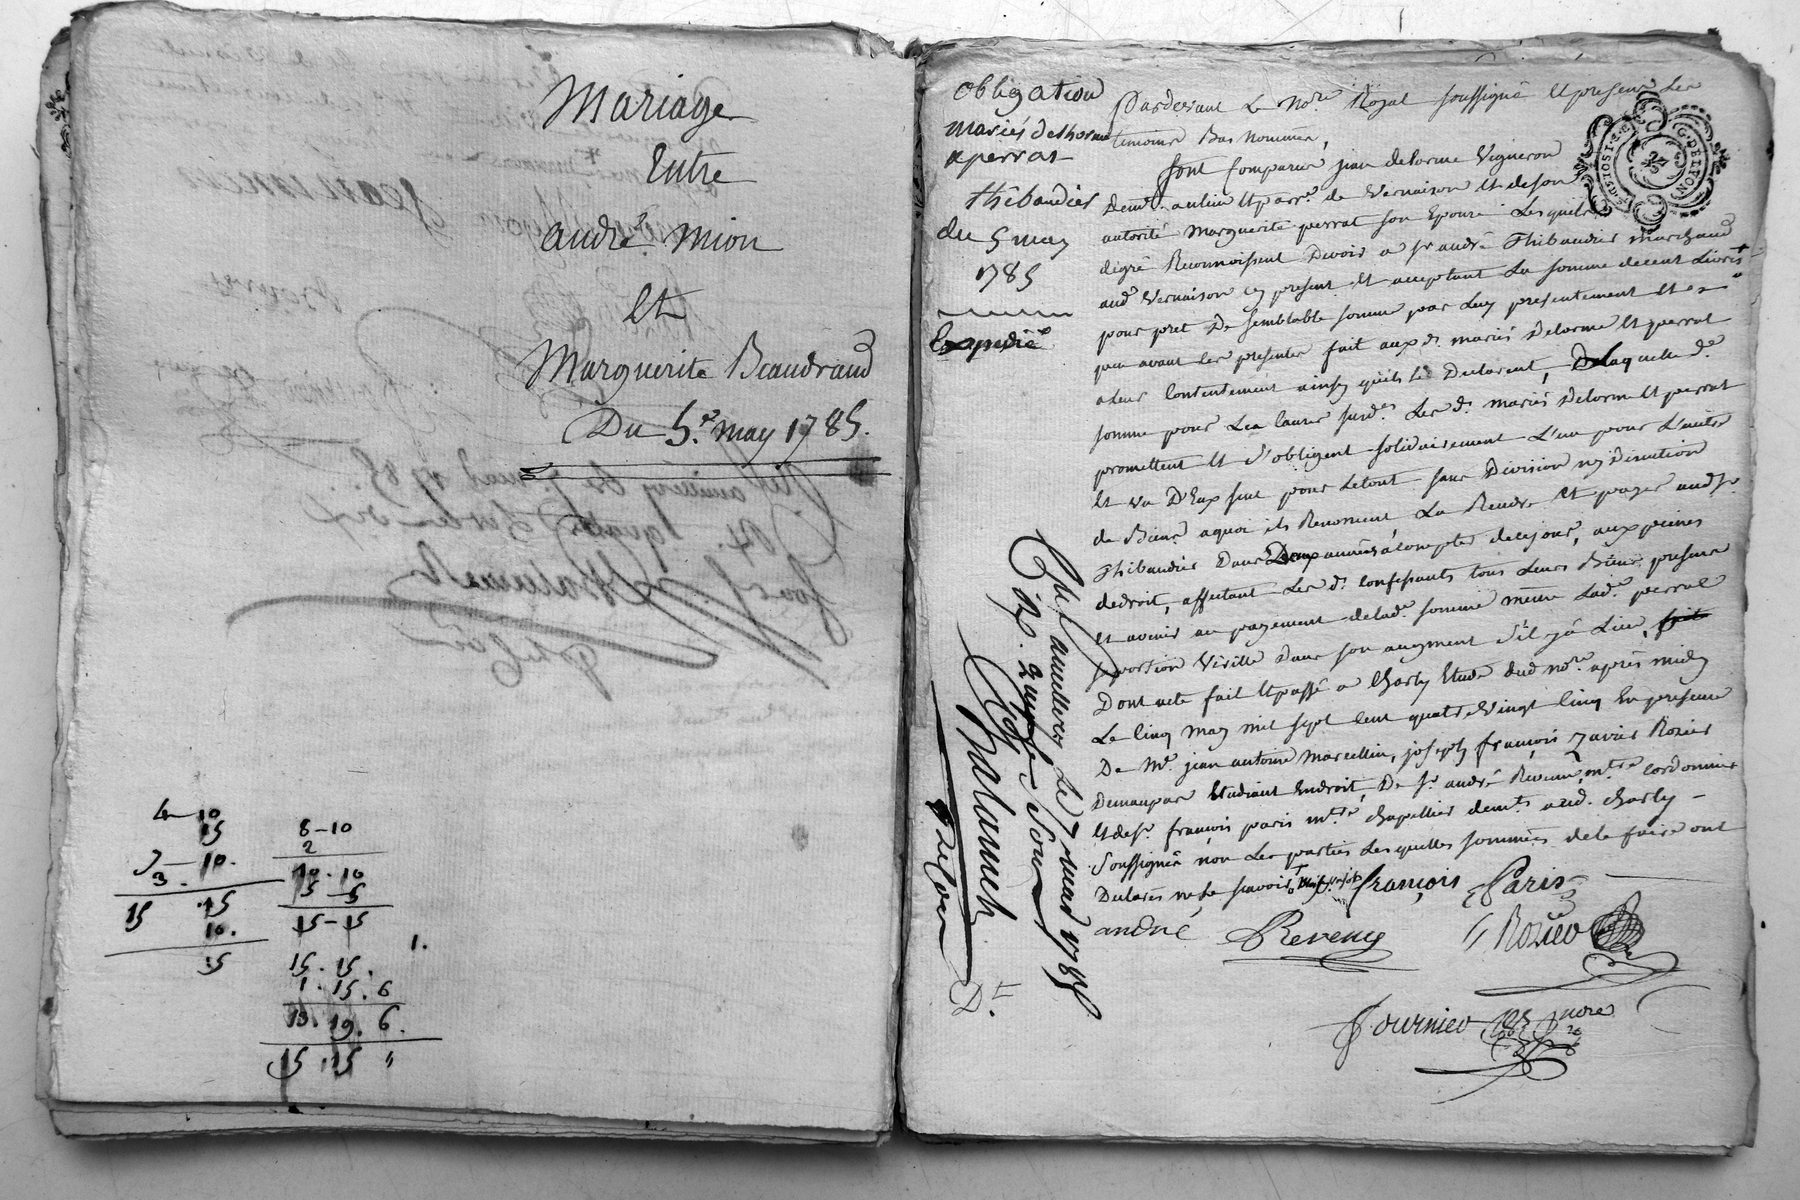 Mariage
Entre
andré mion
Et
Marguerite Beaudrand
Du 5.e may 1785.
4 10
15
7 — 10.
3.
15 .15
10.
15
8 — 10
2
10 . 10
5 — 5
15 — 15
1.
15 . 15 .
1 . 15 . 6
13 . 19 . 6 .
15 . 15 "
obligation
mariés delhorme
a perrat
thibaudier
du 5 may
1785
Expedié
Pardevant Le no.re Royal soussigné Et presens Les
temoins Bas nommés,
sont Comparus jean delorme Vigneron
dem.t au lieu Et parr.e de Vernaison Et de son
autorité marguerite perrat son Epouse Lesquels
degré Reconnoissent Devoir a s.r andré Thibaudier marchand
aud. Vernaison cy present Et acceptant La somme de cent Livres
pour pret De semblable somme par Luy presentement Et
peu avant les presentes fait auxd. mariés Delorme Et perrat
a leur Contentement ainsy qu'ils Le Declarent, De Laquelle d.e
somme pour Les causes susd.es Les d. mariés Delorme Et perrat
promettent Et s'obligent solidairement L'un pour L'autre
Et un D'Eux seul pour Letout sans Division ny discution
de Biens aquoi ils Renoncent La Rendre Et payer aud. s.r
Thibaudier Dans Deux années à compter de ce jour, aux peines
dedroit, affectant Les d. Confessants tous Leurs Biens presens
Et avenir au payement de lad.e somme meme Lad.e perrat
portion Virille Dans son augment s'il y a Lieu,
Dont acte fait Et passé a Charly Etude dud. no.re après midy
Le Cinq may mil sept Cent quatre Vingt Cinq En presence
De M.e jean antoine Marcellin, joseph françois Zavier Rozier
Demaupas Etudiant En droit, De s.r andré Revenu m.tre Cordonnier
Et de s.r françois paris m.tre chapellier dem.ts aud. Charly —
Soussignés non Les parties Lesquelles sommées de le faire ont
Declarés ne Le scavoir françois Paris
andré Revenu Rozier
Fournier no.re
D.t